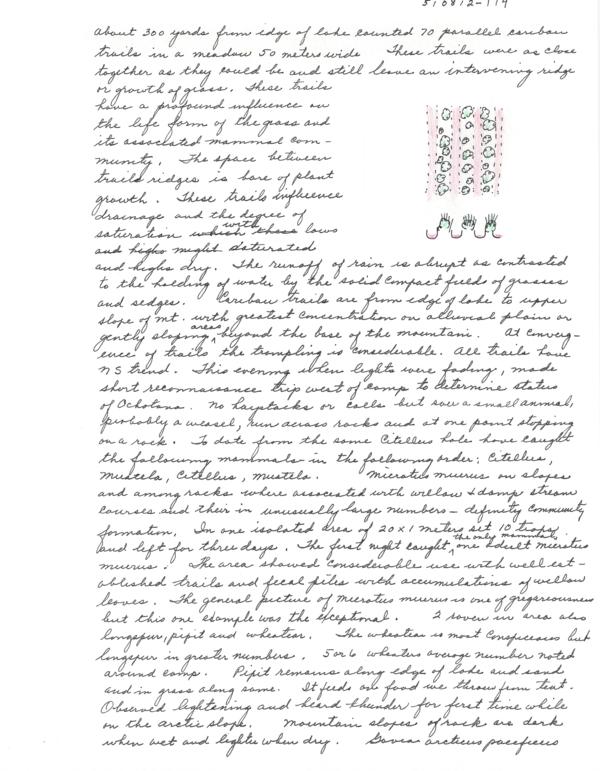 510812-119
About 300 yards from edge of lake counted 70 parallel caribou
trails in a meadow 50 meters wide These trails were as close
together as they could be and still leave an intervening ridge
or growth of grass. These trails
have a profound influence on
the life form of the grass and
its associated mammal com-
munity. The space between
trails ridges is bare of plant
growth. These trails influence
drainage and the degree of
saturation which those lows
with
and highs might saturated
and highs dry. The runoff of rain is abrupt as contrasted
to the holding of water by the solid compact fields of grasses
and sedges. Caribou trails are from edge of lake to upper
slope of mt. with greatest concentration on alluvial plain or
gently sloping areas beyond the base of the mountain. At converg-
ence of trails the trampling is considerable. All trails have
N S trend. This evening when lights were fading, made
short reconnaissance trip west of camp to determine status
of Ochotona. No haystacks or calls but saw a small animal,
probably a weasel, run across rocks and at one point stopping
on a rock. To date from the same Citellus hole have caught
the following mammals in the following order: Citellus,
Mustela, Citellus, Mustela. Microtus miurus on slopes
and among rocks where associated with willow & damp stream
courses and their in unusually large numbers - definitly community
formation. In one isolated area of 20 x 1 meters set 10 traps
and left for three days. The first night caught the only mammal, one adult Microtus
miurus. The area showed considerable use with well est-
ablished trails and fecal piles with accumulations of willow
leaves. The general picture of Microtus miurus is one of gregariousness
but this one example was the exceptional. 2 raven in area also
longspur, pipit and wheatear. The wheatear is most conspicuous but
longspur in greater numbers. 5 or 6 wheatears average number noted
around camp. Pipit remains along edge of lake and sand
and in grass along same. It feeds on food we throw from tent.
Observed lightening and heard thunder for first time while
on the arctic slope. Mountain slopes of rock are dark
when wet and lighter when dry. Gavia arcticus pacificus